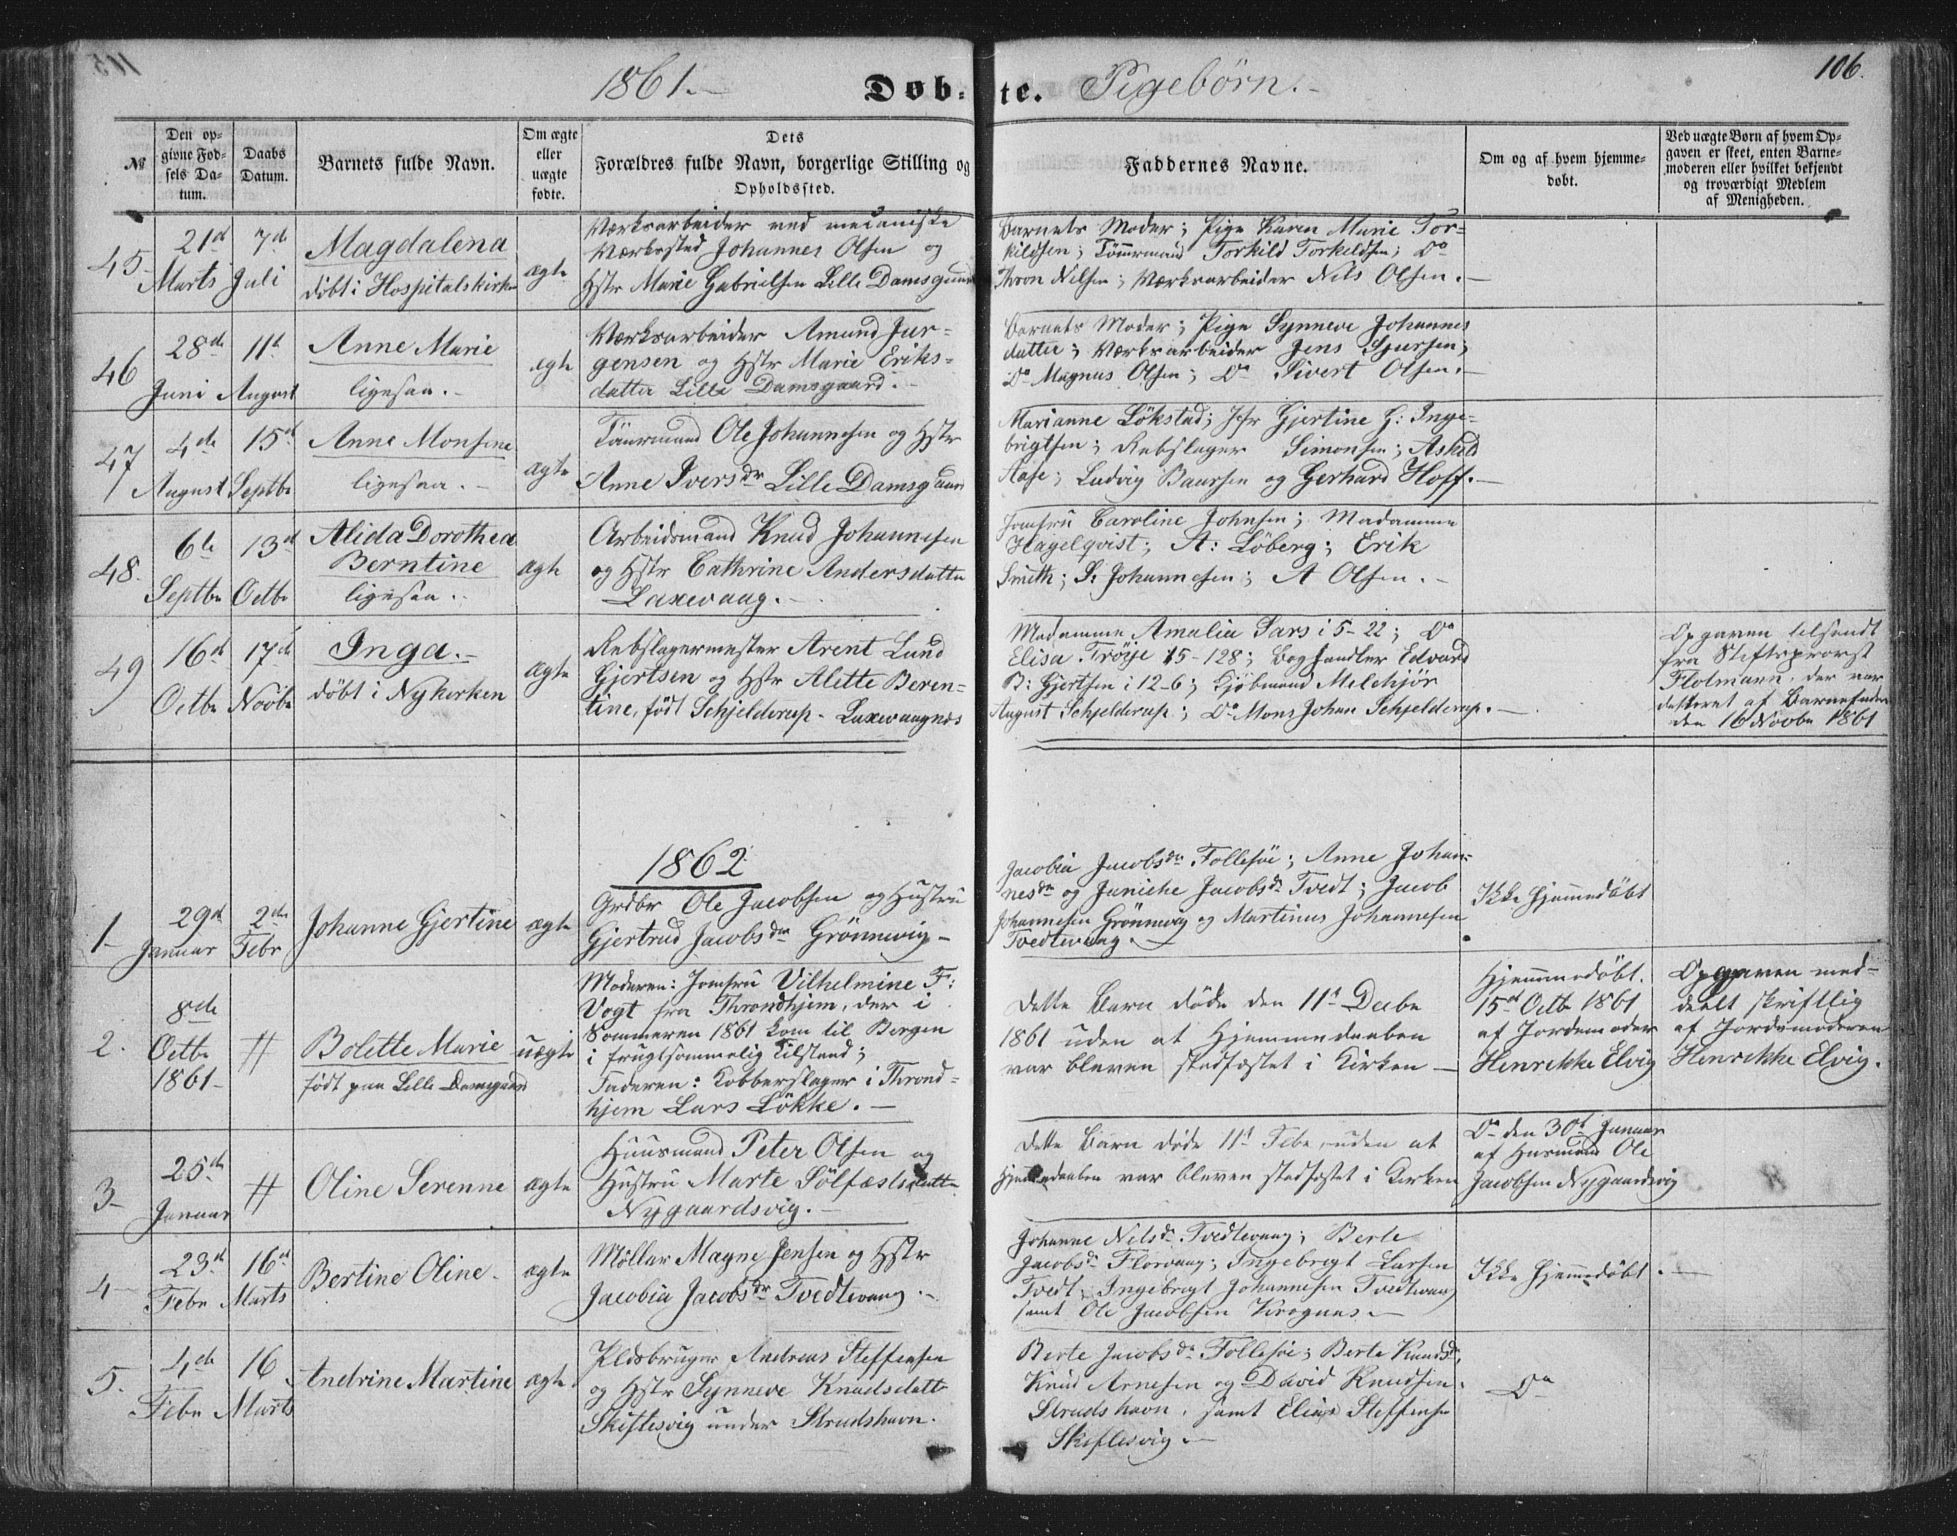 1861.- Døb- te. Pigebørn.- 106.
№
Den op-
givne Fød-
sels Da-
tum.
Daabs
Datum.
Barnets fulde Navn.
Om ægte
eller
uægte
fødte.
Dets
Forældres fulde Navn, borgerlige Stilling og
Opholdssted.
Faddernes Navne.
Om og af hvem hjemme-
døbt.
Ved uægte Børn af hvem Op-
gaven er skeet, enten Barne-
moderen eller hvilket bekjendt
og troværdigt Medlem
af Menigheden.
45-
21d
Marts
7d
Juli
Magdalena
døbt i Hospitalskirken
ægte
Værksarbeider ved mecaniske
Værksted Johannes Olsen og
Hstr Marie Gabrielsen Lille Damsgaard
Barnets Moder; Pige Karen Marie Tor-
kildsen; Tømrmand Torkild Torkeldsen; Do
Thron Nilsen; Værksarbeider Nils Olsen.-
46
28d
Juni
11t
August
Anne Marie
ligesaa.-
ægte
Værksarbeider Amund Jur-
gensen og Hstr Marie Eriks-
datter Lille Damsgaard.-
Barnets Moder; Pige Synneve Johannes
datter; Værksarbeider Jens Sjursen;
Do Magnus Olsen; Do Sivert Olsen.-
47
4de
August
15d
Septbr
Anne Monsine
ligesaa.-
ægte
Tømrmand Ole Johannesen og Hstr
Anne Iversdr Lille Damsgaard
Marianne Løkstad; Jfr Gjertine G: Inge-
brigtsen; Rebslager Simonsen; Askild
Aase; Ludvig Baarsen og Gerhard Hoff.-
48.
6te
Septbr
13d
Octbr
Alida Dorothea
Berntine
ligesaa.-
ægte
Arbeidsmand Knud Johannesen
og Hstr Cathrine Andersdatter
Laxevaag.-
Jomfru Caroline Johnsen; Madamme
Hagelqvist; A: Løberg; Erik
Smith; S: Johannesen; A Olsen.-
49
16d
Octbr
17de
Novbr
Inga.-
døbt i Nykirken
ægte
Rebslagermester Arent Lund
Gjertsen og Hstr Alette Beren-
tine, født Schjelderup- Laxevaagnæs
Madamme Amalia Sars i 5-22; Do
Elisa Trøye 15-128; Boghandler Edvard
B: Gjertsen i 12-6; Kjøbmand Melchjør
August Schjelderup; Do Mons Johan Schjelderup.-
Opgaven tilsendt
fra Stiftsprovst
Flotmann, der var
datteret af Barnefader
den 16 Novbr 1861
1862
1-
29d
Januar
2den
Febr
Johanne Gjertine
ægte
Grdbr Ole Jacobsen og Hustru
Gjertrud Jacobsdr Grønnevig-
Jacobia Jacobsdr Follesøe; Anne Johan-
nesdr og Janiche Jacobsdr Tvedt; Jacob
Johannesen Grønnevig og Martinus Johannesen
Tvedtevaag.
Ikke hjemmedøbt
2.
8de
Octbr
1861-
#
Bolette Marie
født paa Lille Damsgaard
uægte
Moderen: Jomfru Vilhelmine F:
Vogt fra Throndhjem, der i
Sommeren 1861 kom til Bergen
i frugtsommelig Tilstand;
Faderen: Kobberslager i Thrond-
hjem Lars Løkke.-
Dette Barn døde den 11t Decbr
1861 uden at Hjemmedaaben
var bleven stadfæstet i Kirken-
Hjemmedøbt.
15d Octbr 1861
af Jordemoder
Henrikke Elvig
Opgaven med-
deelt skriftlig
af Jordemoderen
Henrikke Elvig.
3-
25de
Januar
#
Oline Serenne
ægte
Huusmand Peter Olsen og
Hustru Marte Sølfæstsdatter
Nygaardsvig.-
Dette Barn døde 11t Febr, uden at
Hjemmedaaben var bleven stadfæstet i Kirken
Do den 30t Januar
af Husmand Ole
Jacobsen Nygaardsvig
4-
23d
Febr
16d
Marts
Bertine Oline.
ægte
Møller Magne Jensen og Hstr
Jacobia Jacobsdr Tvedtevaag.-
Johanne Nilsdr Tvedtevaag; Berte
Jacobsdr Florvaag; Ingebrigt Larsen
Tvedt; Ingebrigt Johannesen Tvedtevaag
samt Ole Jacobsen Kragnæs-
Ikke hjemmedøbt.-
5.
4de
Febr
16
Marts
Andrine Martine
ægte
Pldsbruger Andreas Steffensen
og Hstr Synneve Knudsdatter
Skiftesvig under Strudshavn.
Berte Jacobsdr Follesøe; Berte Knudsdr,
Knud Arnesen og David Knudsen
Strudshavn, samt Elias Steffensen
Skiftesvig.-
Do